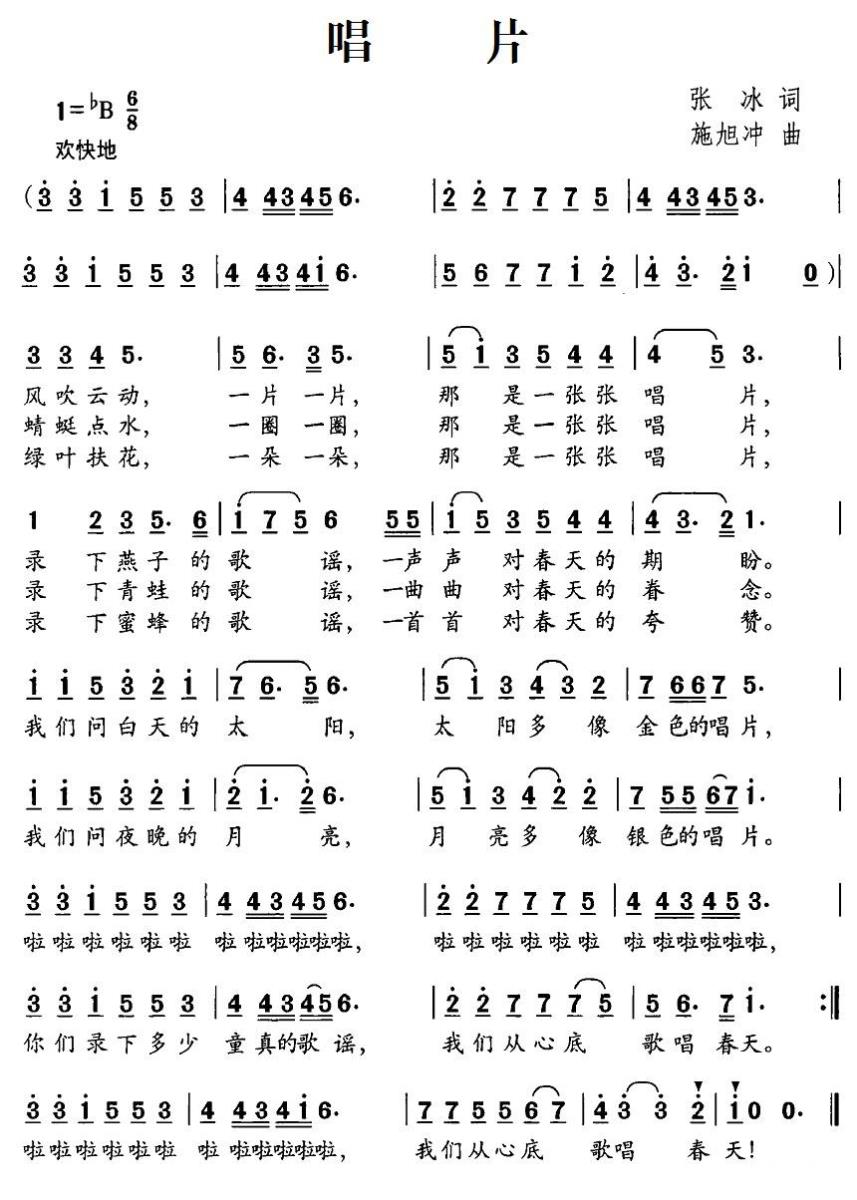 唱 片
1=♭B 6/8
张 冰 词
欢快地
施旭冲 曲
(3̇ 3̇ 1̇ 5 5 3 | 4 43 45 6. | 2̇ 2̇ 7 7 7 5 | 4 43 45 3. |
3̇ 3̇ 1̇ 5 5 3 | 4 43 41̇ 6. | 5 6 7 7 1̇ 2̇ | 4̇ 3̇. 2̇ 1̇ 0 ) |
3 3 4 5. | 5 6. 3 5. | 5 1̇ 3 5 4 4 | 4 5 3. |
风吹云动, 一片 一片, 那 是一张张 唱 片,
蜻蜓点水, 一圈 一圈, 那 是一张张 唱 片,
绿叶扶花, 一朵 一朵, 那 是一张张 唱 片,
1 2 3 5. 6 | 1̇ 7 5 6 55 | 1̇ 5 3 5 4 4 | 4 3. 2 1. |
录 下燕子 的歌 谣, 一声 声 对春天的 期 盼。
录 下青蛙 的歌 谣, 一曲 曲 对春天的 眷 念。
录 下蜜蜂 的歌 谣, 一首 首 对春天的 夸 赞。
1̇ 1̇ 5 3̇ 2̇ 1̇ | 7 6. 5 6. | 5 1̇ 3 4 3 2 | 7 667 5. |
我们问白天的 太 阳, 太 阳多 像 金色的唱片,
1̇ 1̇ 5 3̇ 2̇ 1̇ | 2̇ 1̇. 2̇ 6. | 5 1̇ 3 4 2̇ 2̇ | 7 55 67 1̇. |
我们问夜晚的 月 亮, 月 亮多 像 银色的唱 片。
3̇ 3̇ 1̇ 5 5 3 | 4 43 45 6. | 2̇ 2̇ 7 7 7 5 | 4 43 45 3. |
啦啦啦啦啦啦 啦 啦啦啦啦啦, 啦啦啦啦啦啦 啦 啦啦啦啦啦,
3̇ 3̇ 1̇ 5 5 3 | 4 43 45 6. | 2̇ 2̇ 7 7 7 5 | 5 6. 7 1̇. :‖
你们录下多少 童真的歌 谣, 我们从心底 歌唱 春天。
3̇ 3̇ 1̇ 5 5 3 | 4 43 41̇ 6. | 7 7 5 5 6 7 | 4̇ 3̇ 3̇ 2̇ | 1̇ 0 0. ‖
啦啦啦啦啦啦 啦 啦啦啦啦啦, 我们从心底 歌唱 春 天!